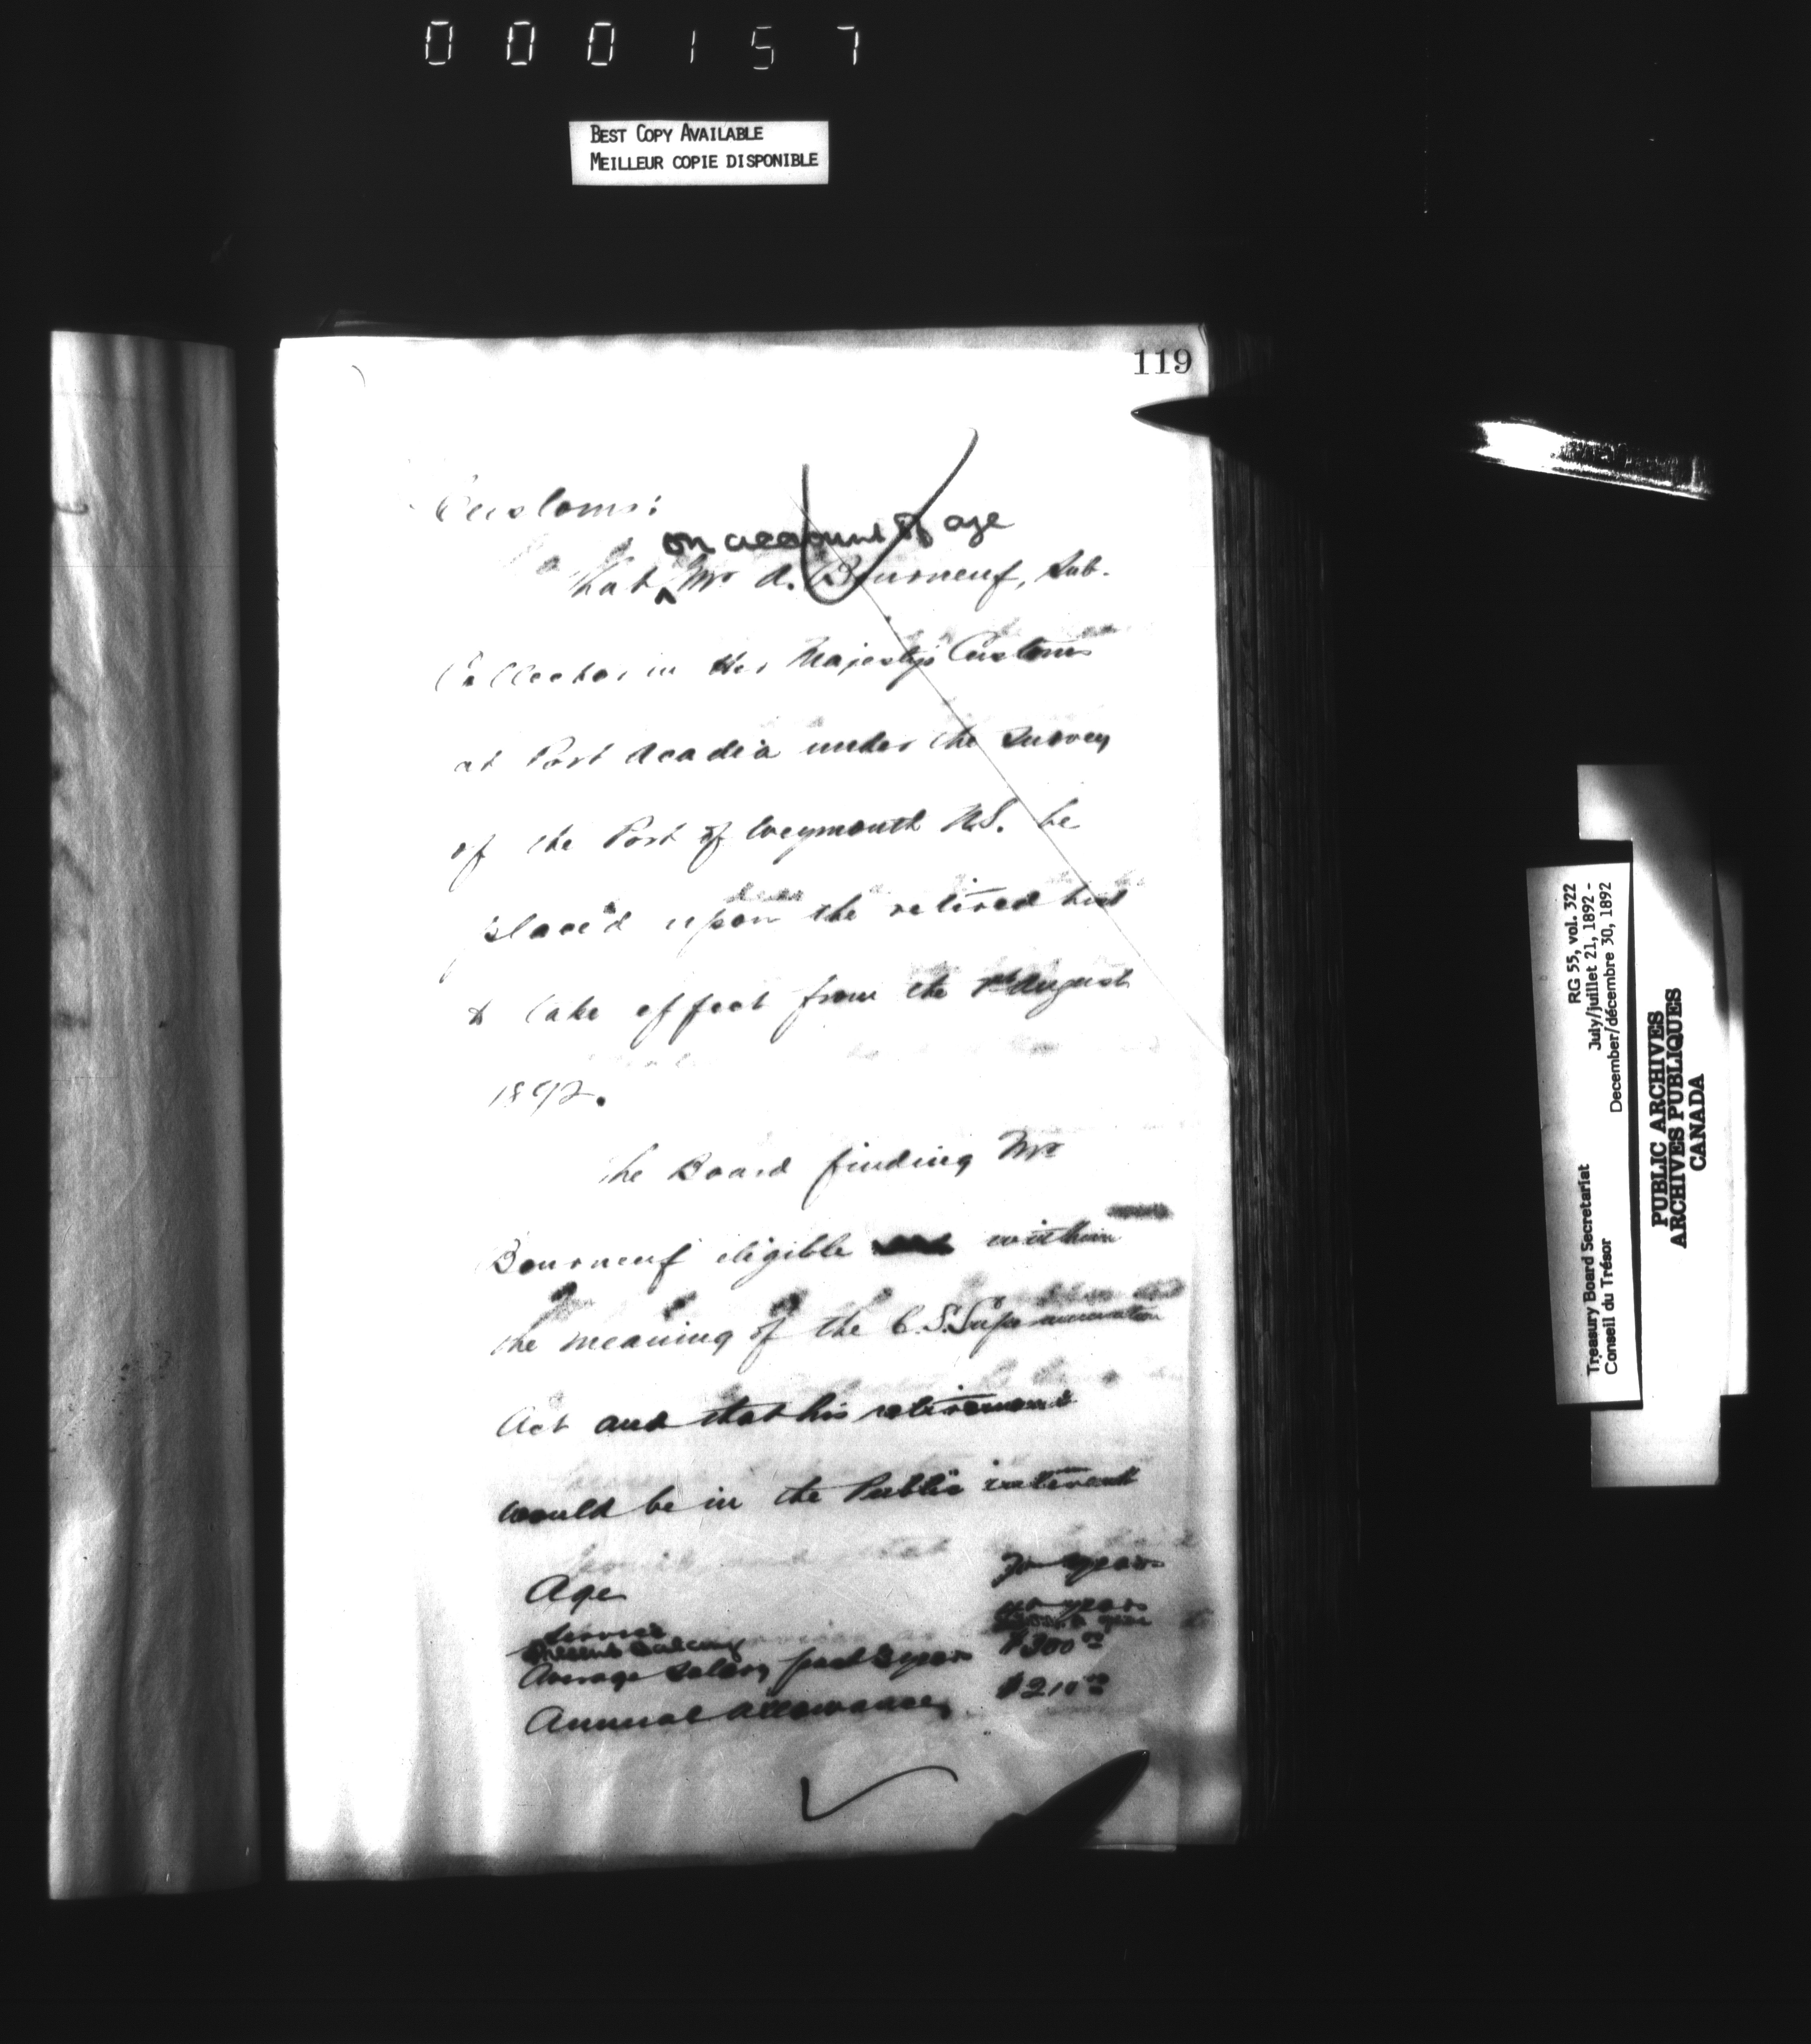 000157
BEST COPY AVAILABLE
MEILLEUR COPIE DISPONIBLE
119
Customs:
on account of age
That ^ Mr A. Bourneuf, Sub.
Collector in Her Majesty's Customs
at Port Acadia under the Survey
of the Port of Weymouth N.S. be
placed upon the retired list
to take effect from the 1st August
1892.
The Board finding Mr
Bourneuf eligible within
the meaning of the C.S. Superannuation
Act and that his retirement
would be in the Public interest
Age 70 years
Service years
Present Salary
Average Salary past 3 years $300 00
Annual allowance $210 00
RG 55, vol. 322
July/juillet 21, 1892 -
December/décembre 30, 1892
Treasury Board Secretariat
Conseil du Trésor
PUBLIC ARCHIVES
ARCHIVES PUBLIQUES
CANADA